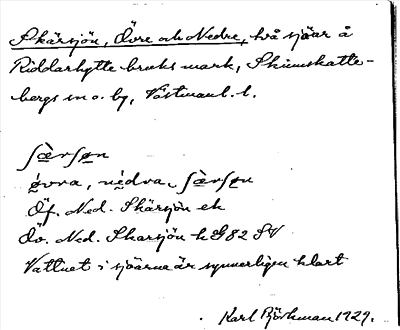 Skärsjön, Övre och Nedre, två sjöar å
Riddarhytte bruks mark, Skinnskatte-
bergs sn o. by, Västmanl. l.
ʃæ̀rʃøn
ø̀vra, nedra ʃæ̀rʃøn
Öf. Ned. Skärsjön ek
Öv. Ned. Skärsjön hG82 SV
Vattnet i sjöarna är synnerligen klart
Karl Björkman 1929.